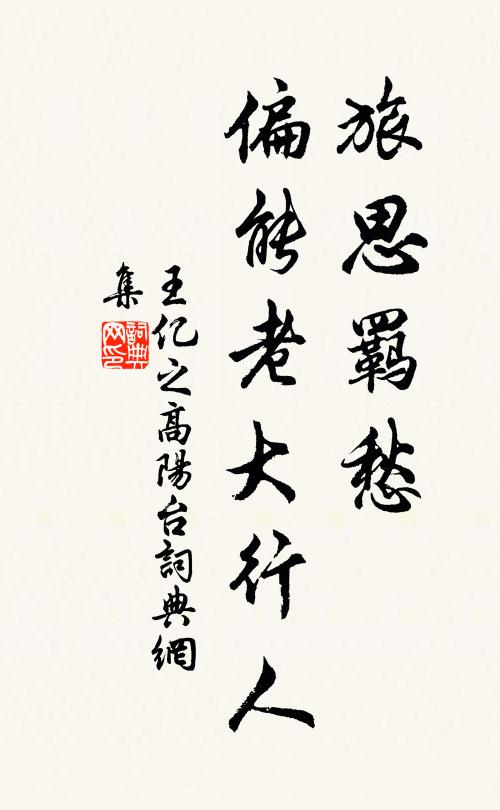 旅思羈愁
偏能老大行人
王亿之高陽台詞典網
集
詞典
网印